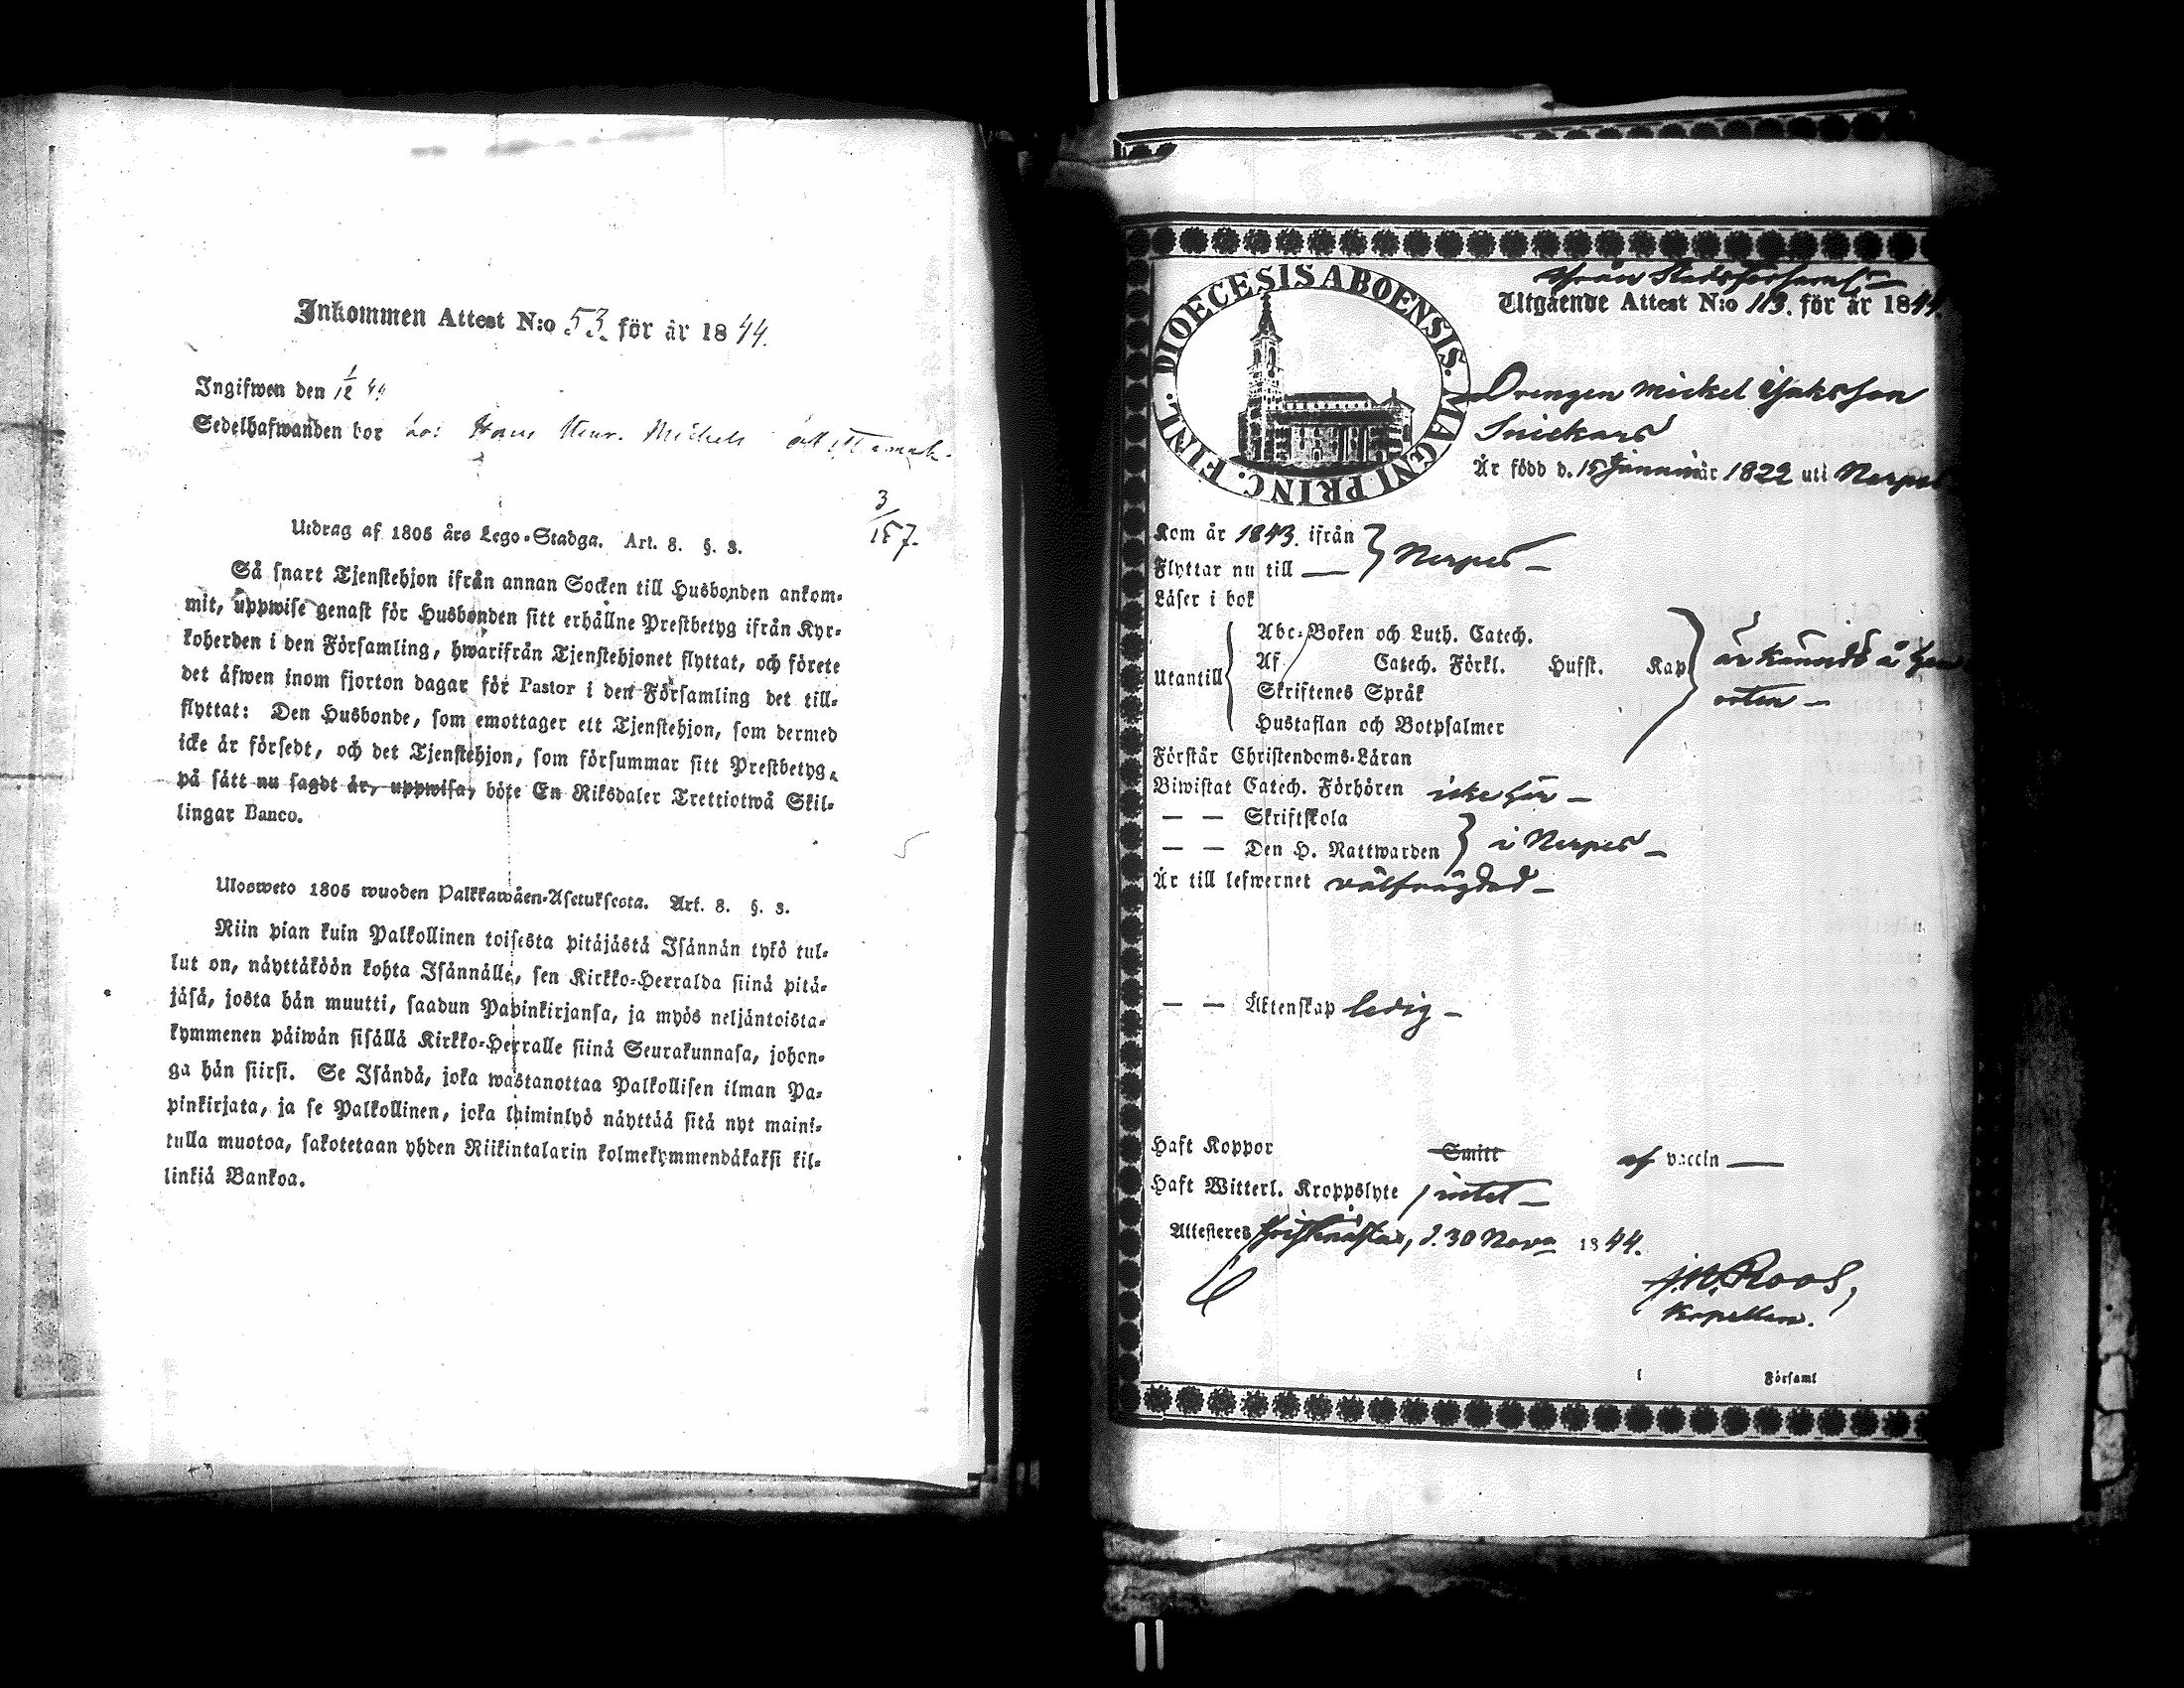 Inkommen Attest N:o 53. för år 1844.
Ingifwen den 1/12 44
Sedelhafwanden bor hos Hans Henr. Michels
3/157.
Utdrag af 1805 års Lego-Stadga. Art. 8. §. 3.
Så snart Tjenstehjon ifrån annan Socken till Husbonden ankom-
mit, uppwise genast för Husbonden sitt erhållne Prestbetyg ifrån Kyr-
koherden i den Församling, hwarifrån Tjenstehjonet flyttat, och förete
det äfwen inom fjorton dagar för Pastor i den Församling det till-
flyttat: Den Husbonde, som emottager ett Tjenstehjon, som dermed
icke är försedt, och det Tjenstehjon, som försummar sitt Prestbetyg,
på sätt nu sagdt är, uppwisa, böte En Riksdaler Trettiotwå Skil-
lingar Banco.
Ulosweto 1805 wuoden Palkkawäen-Asetuksesta. Art. 8. §. 3.
Niin pian kuin Palkollinen toisesta pitäjästä Isännän tykö tul-
lut on, näyttäköön kohta Isännälle, sen Kirkko-Herralda siinä pitä-
jäsä, josta hän muutti, saadun Papinkirjansa, ja myös neljäntoista-
kymmenen päiwän sisällä Kirkko-Herralle siinä Seurakunnasa, johon-
ga hän siirsi. Se Isändä, joka wastanottaa Palkollisen ilman Pa-
pinkirjata, ja se Palkollinen, joka lyiminlyö näyttää sitä nyt maini-
tulla muotoa, sakotetaan yhden Riikintalarin kolmekymmendäkaksi kil-
linkiä Bankoa.
DIOECESIS ABOENSIS. MAGNI PRINC. FINL.
ifrån Stadsförsaml.
Utgående Attest N:o 113. för år 1844.
Drengen Mickel Isaksson
Snickars
Är född d. 15 Januarii år 1822 uti Nerpes
Kom år 1843. ifrån
Flyttar nu till — } Nerpes —
Läser i bok
Abc-Boken och Luth. Catech.
Utantill { Af Catech. Förkl. Husst. Kap } är kändt å
Skriftenes Språk orten —
Hustaflan och Botpsalmer
Förstår Christendoms-Läran
Biwistat Catech. Förhören icke här —
— — Skriftskola
— — Den H. Nattwarden } i Nerpes —
Är till lefwernet välfrägdad —
— — Äktenskap ledig —
Haft Koppor Smitt af vaccin —
Haft Witterl. Kroppslyte intet —
Attesteres Christinæstad, d. 30 Nov. 1844.
J. N. Roos,
Kapellan.
i Församl